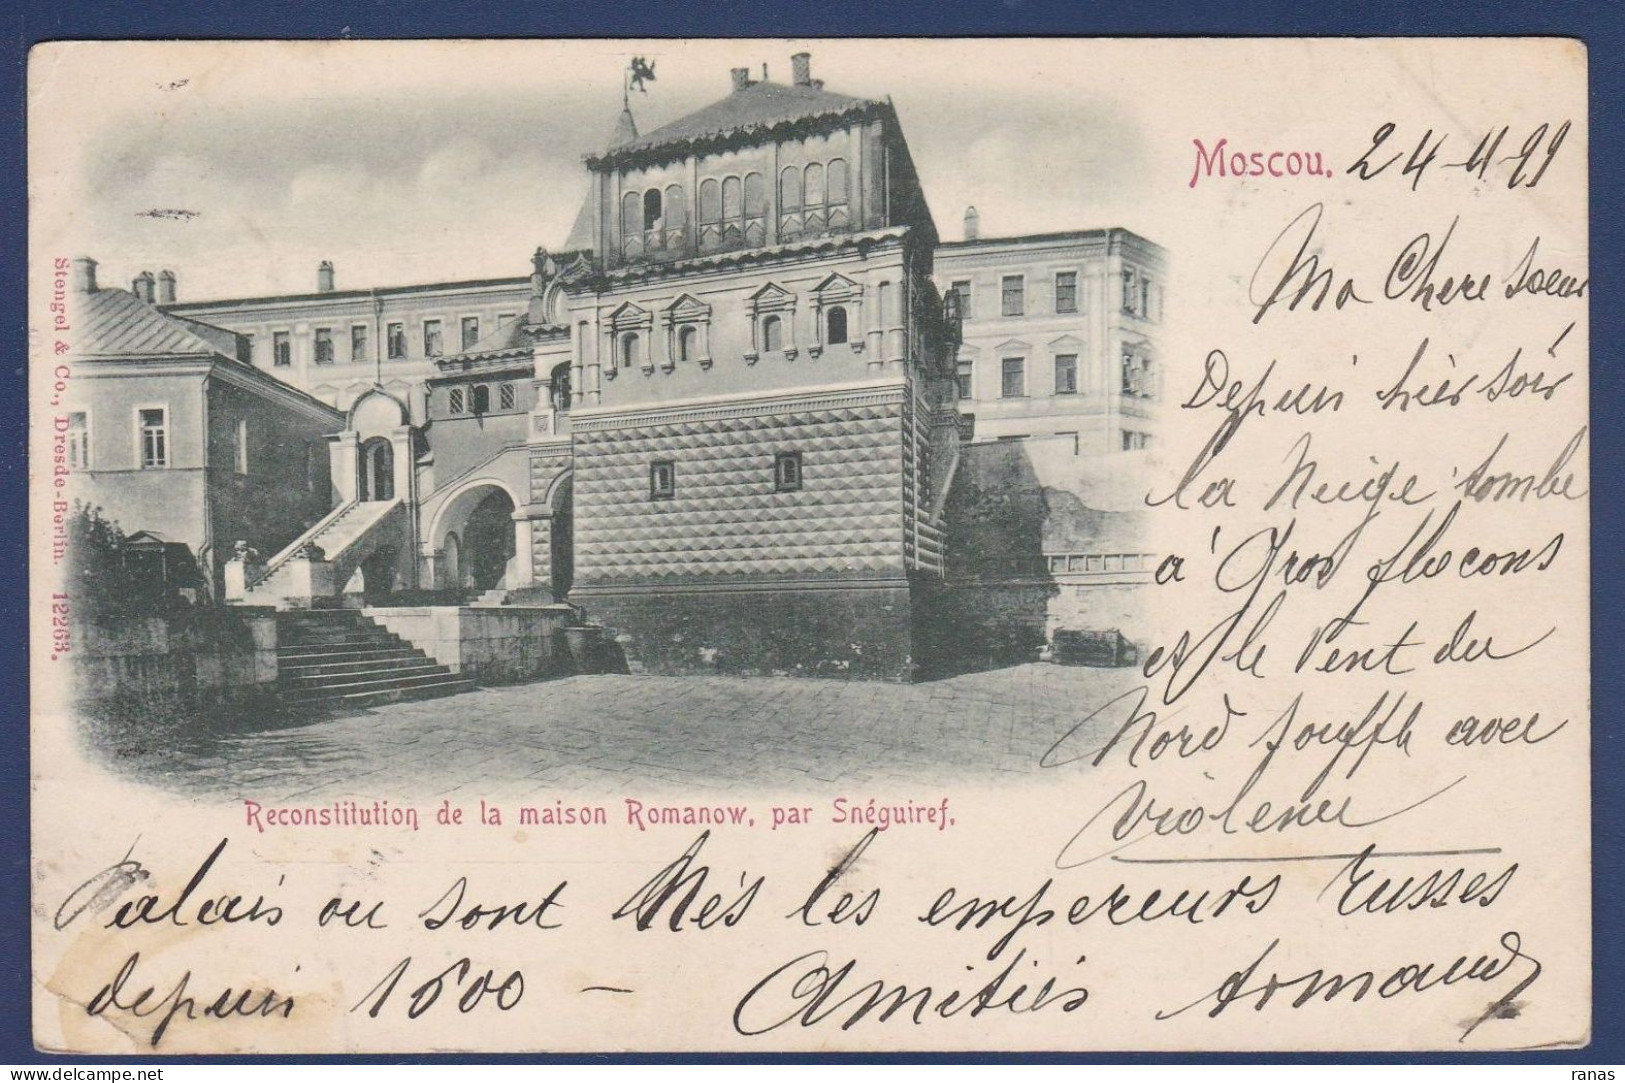 Moscou. 24-11-99
Ma Chere soeur
Depuis hièr soir
la Neige tombe
à Gros flocons
et le Vent du
Nord souffle avec
Violence
Reconstitution de la maison Romanow, par Snéguiref.
Palais ou sont Nés les empereurs russes
depuis 1600 – Amitiés Armand
Stengel & Co., Dresde-Berlin. 12263.
delcampe.net
ranas